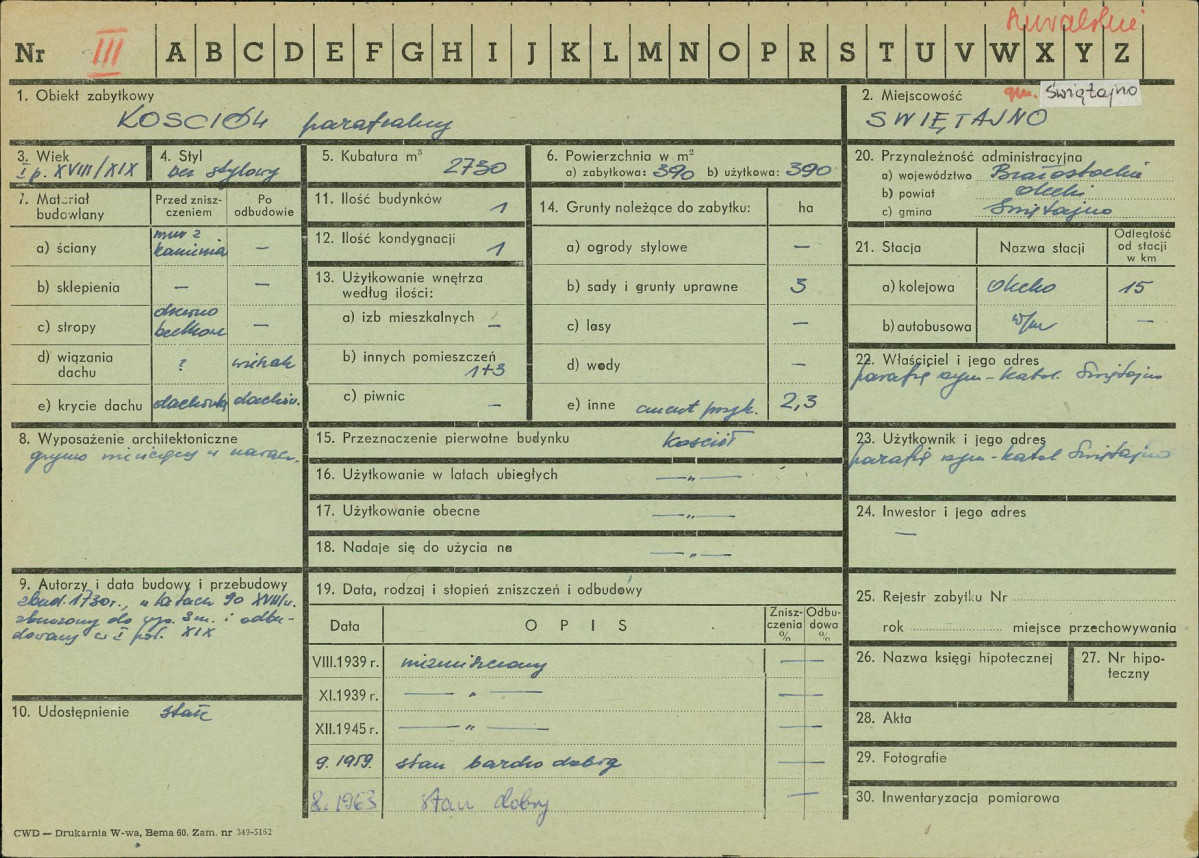 suwalskie
Nr III A B C D E F G H I J K L M N O P R S T U V W X Y Z
1. Obiekt zabytkowy
KOŚCIÓŁ parafialny
2. Miejscowość gm. Świętajno
ŚWIĘTAJNO
3. Wiek
I p. XVIII/XIX
4. Styl
bez stylowy
5. Kubatura m³
2730
6. Powierzchnia w m²
a) zabytkowa: 390 b) użytkowa: 390
7. Materiał budowlany
Przed zniszczeniem
Po odbudowie
a) ściany mur z kamienia —
b) sklepienia — —
c) stropy drewno belkowe —
d) wiązania dachu ?
e) krycie dachu dachówka dachów.
8. Wyposażenie architektoniczne
9. Autorzy i data budowy i przebudowy
zbud. 1730 r., w latach 90 XVIII w.
zburzony do wys. 3 m. i odbu-
dowany w I poł. XIX
10. Udostępnienie stałe
11. Ilość budynków 1
12. Ilość kondygnacji 1
13. Użytkowanie wnętrza według ilości:
a) izb mieszkalnych —
b) innych pomieszczeń 1+3
c) piwnic —
14. Grunty należące do zabytku: ha
a) ogrody stylowe —
b) sady i grunty uprawne 3
c) lasy —
d) wody —
e) inne cment. przyk. 2,3
15. Przeznaczenie pierwotne budynku kościół
16. Użytkowanie w latach ubiegłych —"—
17. Użytkowanie obecne —"—
18. Nadaje się do użycia na —"—
19. Data, rodzaj i stopień zniszczeń i odbudowy
Data OPIS Zniszczenia % Odbudowa %
VIII.1939 r. niezniszczony —
XI.1939 r. —"— —
XII.1945 r. —"— —
9.1959. stan bardzo dobry —
8.1963 stan dobry —
20. Przynależność administracyjna
a) województwo Białostockie
b) powiat Olecki
c) gmina Świętajno
21. Stacja Nazwa stacji Odległość od stacji w km
a) kolejowa Olecko 15
b) autobusowa w/m —
22. Właściciel i jego adres
parafia rzym-katol. Świętajno
23. Użytkownik i jego adres
parafia rzym-katol Świętajno
24. Inwestor i jego adres
—
25. Rejestr zabytku Nr
rok miejsce przechowywania
26. Nazwa księgi hipotecznej
27. Nr hipoteczny
28. Akta
29. Fotografie
30. Inwentaryzacja pomiarowa
CWD — Drukarnia W-wa, Bema 60. Zam. nr 349-5162